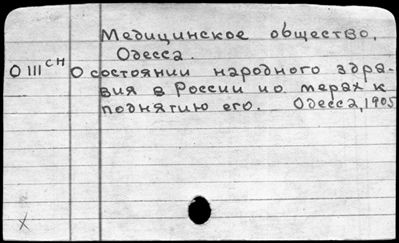 Медицинское общество,
Одесса.
О III сн О состоянии народного здра-
вия в России и о мерах к
поднятию его. Одесса, 1905
X